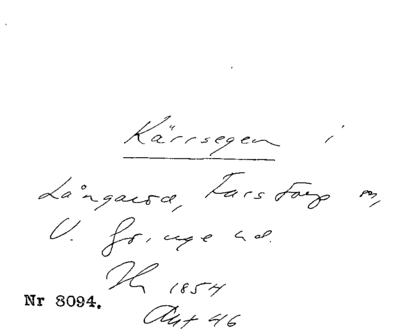 Kärrsegen i
Långaröd, Färs Torp sn,
V. Göinge hd.
1854
Nr 8094.
Aut 46